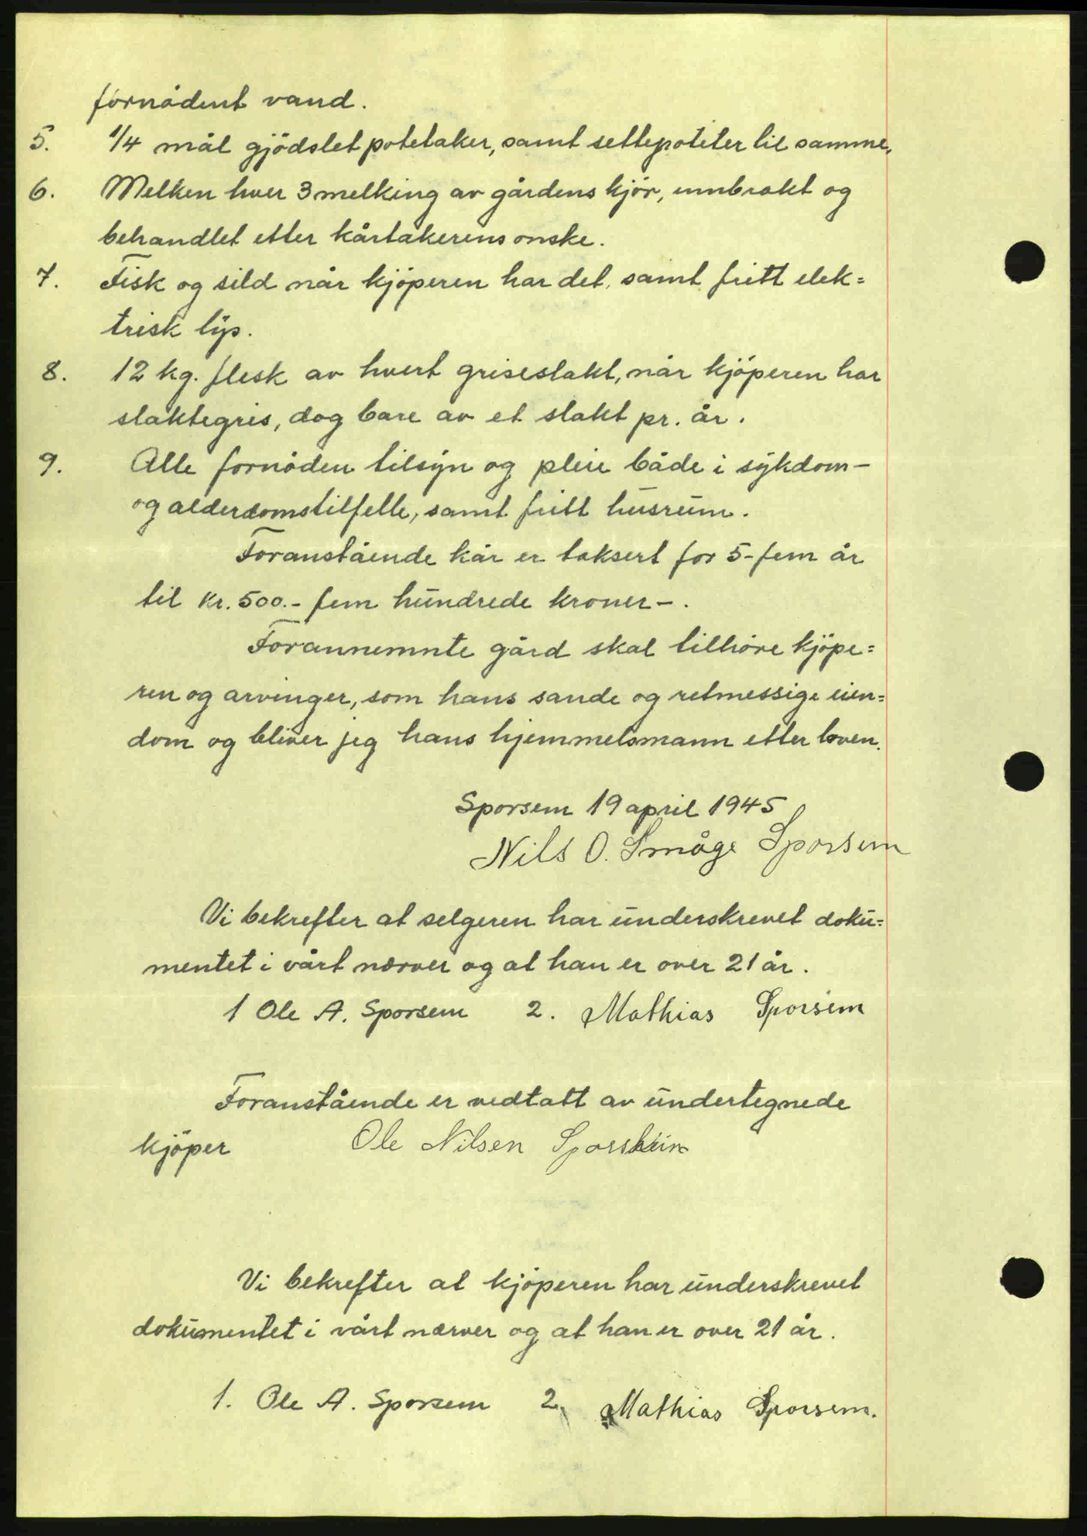 fornødent vand.
5. 1/4 mål gjödslet potetaker, samt settepoteter til samme,
6. Melken hver 3 melking av gårdens kjör, innbrakt og
behandlet etter kårtakerens önske.
7. Fisk og sild når kjöperen har det, samt fritt elek=
trisk lys.
8. 12 kg. flesk av hvert griseslakt, når kjöperen har
slaktegris, dog bare av et slakt pr. år.
9. Alle fornöden tilsyn og pleie både i sykdom-
og alderdomstilfelle, samt fritt husrum.
Foranstående kår er taksert for 5-fem år
til kr. 500.- fem hundrede kroner-.
Forannemnte gård skal tilhöre kjöpe=
ren og arvinger, som hans sande og retmessige eien=
dom og bliver jeg hans hjemmelsmann etter loven.
Sporsem 19 april 1945
Nils O. Småge Sporsem
Vi bekrefter at selgeren har underskrevet doku=
mentet i vårt nærver og at han er over 21 år.
1 Ole A. Sporsem 2. Mathias Sporsem
Foranstående er vedtatt av undertegnede
kjöper Ole Nilsen Sporsheim
Vi bekrefter at kjöperen har underskrevet
dokumentet i vårt nærver og at han er over 21 år.
1. Ole A. Sporsem 2. Mathias Sporsem.